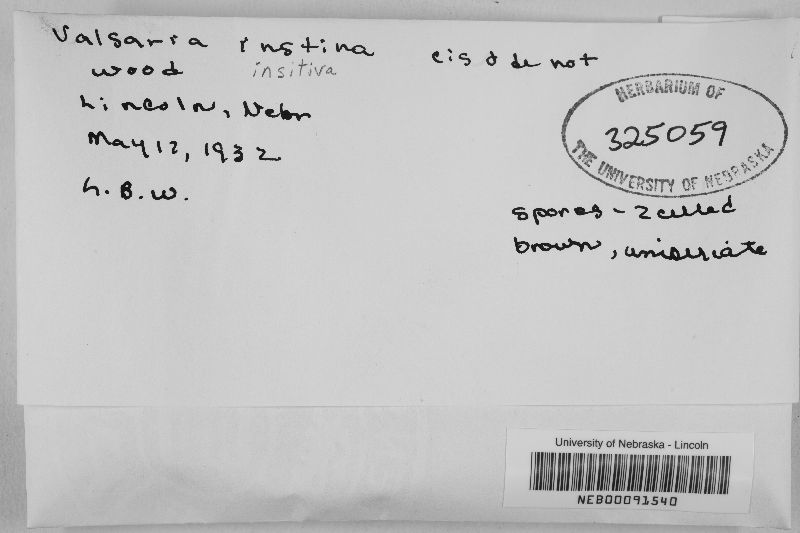 Valsaria instina Ces & de not
wood insitiva
Lincoln, Nebr
May 12, 1932
L. B. W.
HERBARIUM OF
325059
THE UNIVERSITY OF NEBRASKA
spores - 2 celled
brown, uniseriate
University of Nebraska - Lincoln
NEB00091540